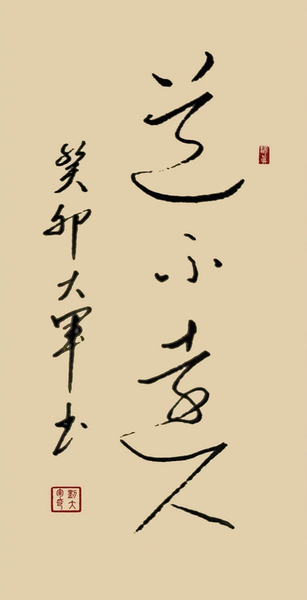 道不遠人
癸卯大軍书